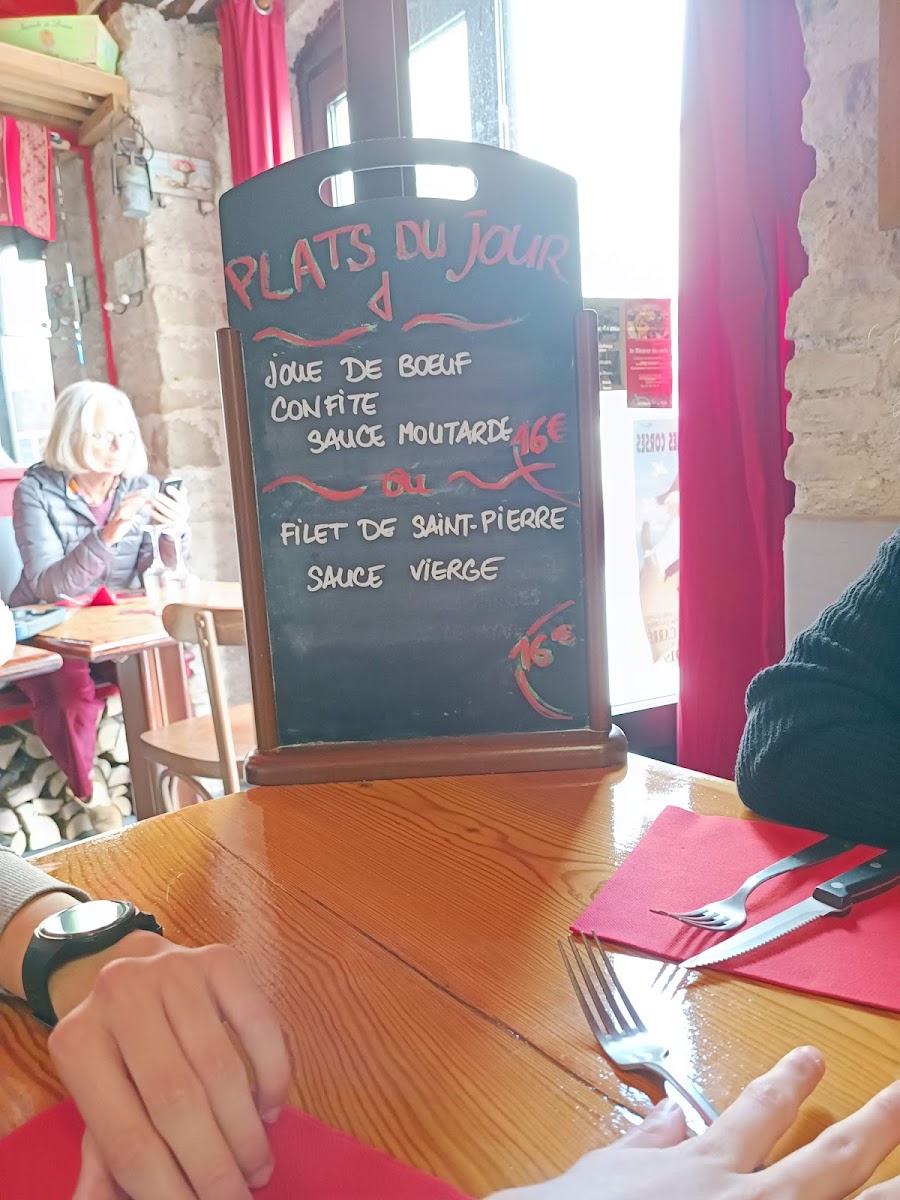 PLATS DU JOUR
JOUE DE BOEUF
CONFITE
SAUCE MOUTARDE 16€
OU
FILET DE SAINT-PIERRE
SAUCE VIERGE
16€